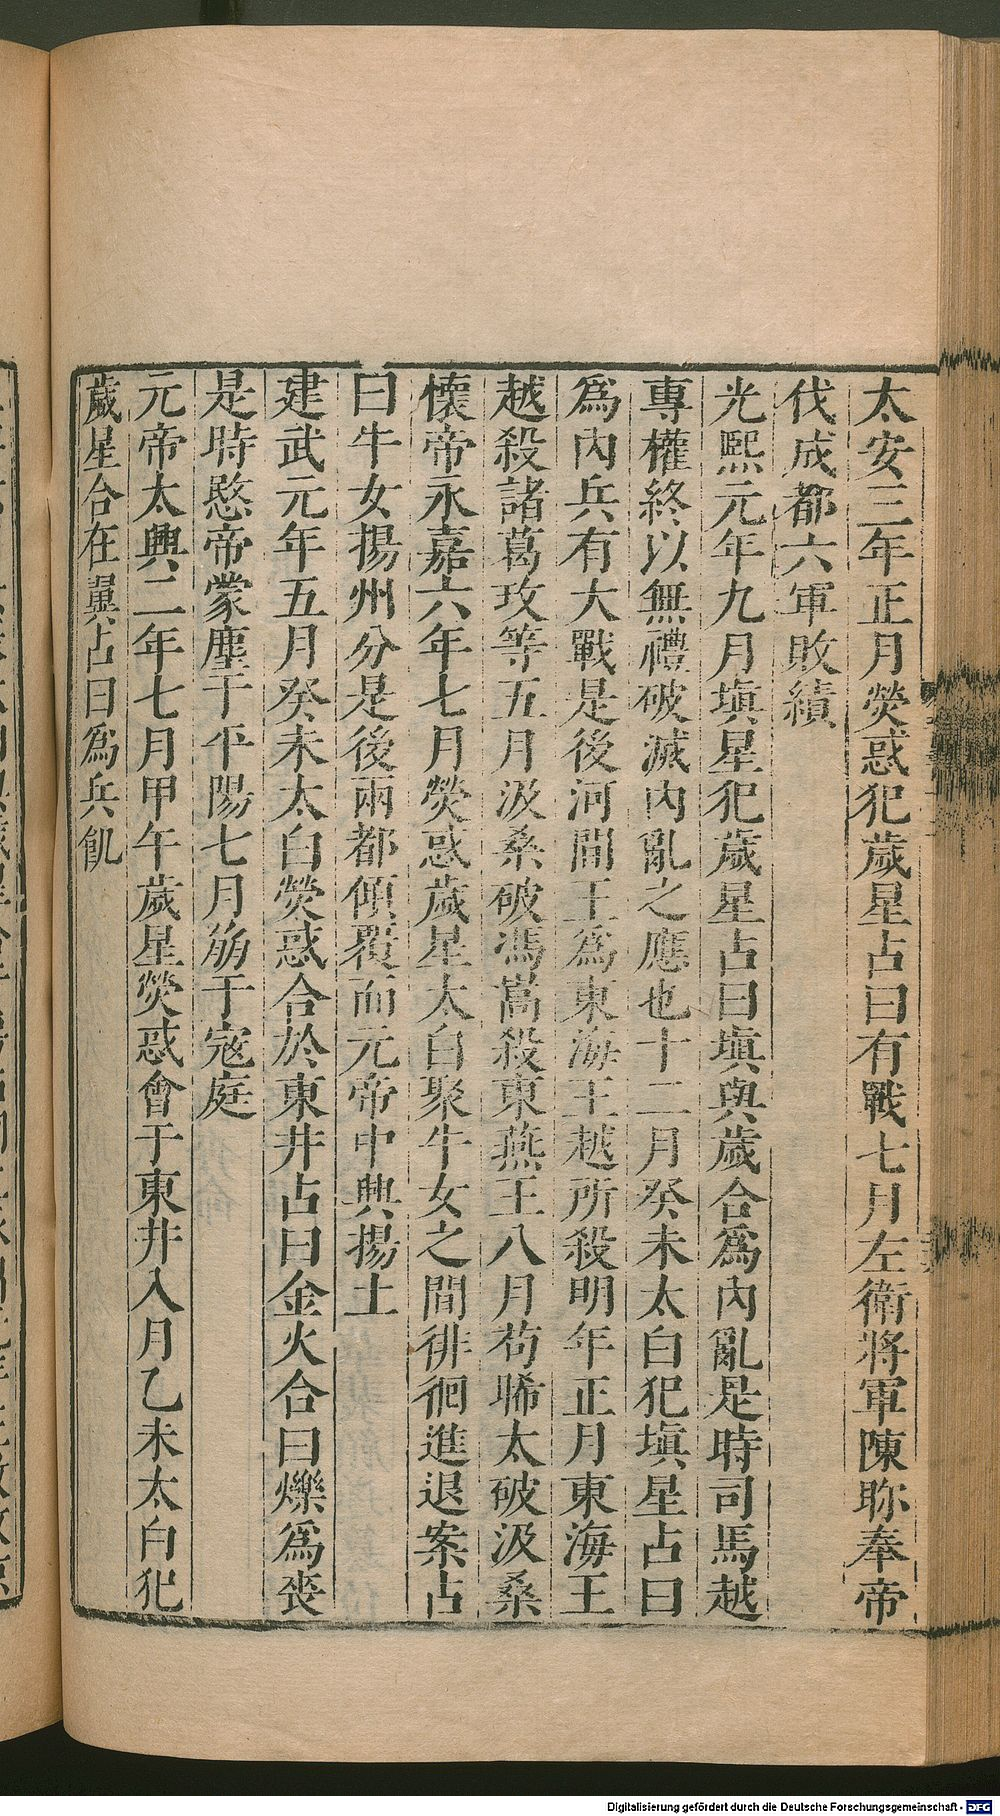 太安三年正月熒惑犯歲星占曰有戰七月左衛將軍陳眕奉帝
伐成都六軍敗績
光熙元年九月塡星犯歲星占曰塡與歲合爲內亂是時司馬越
專權終以無禮破滅內亂之應也十二月癸未太白犯塡星占曰
爲內兵有大戰是後河間王爲東海王越所殺明年正月東海王
越殺諸葛玫等五月汲桑破馮嵩殺東燕王八月苟晞太破汲桑
懷帝永嘉六年七月熒惑歲星太白聚牛女之間徘徊進退案占
曰牛女揚州分是後兩都傾覆而元帝中興揚土
建武元年五月癸未太白熒惑合於東井占曰金火合曰爍爲喪
是時愍帝蒙塵于平陽七月崩于寇庭
元帝太興二年七月甲午歲星熒惑會于東井入月乙未太白犯
歲星合在翼占曰爲兵飢
Digitalisierung gefördert durch die Deutsche Forschungsgemeinschaft - DFG